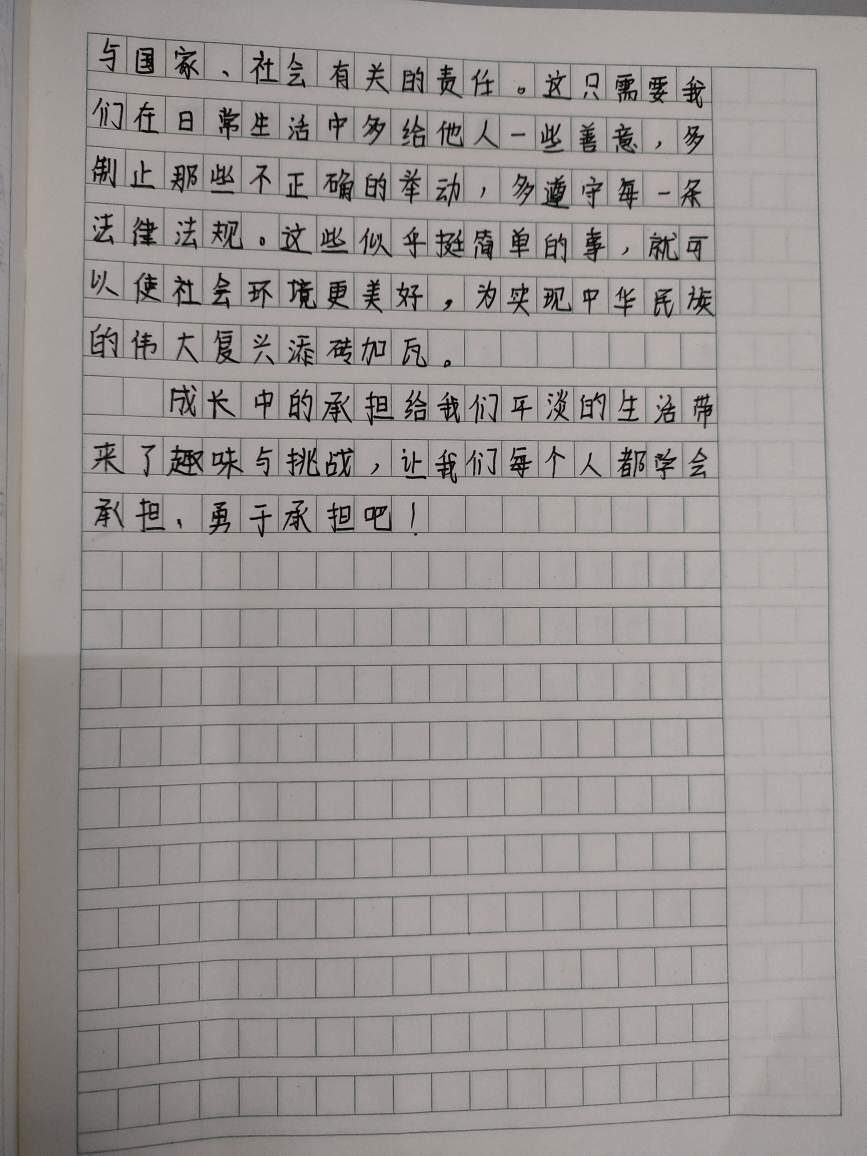 与国家、社会有关的责任。这只需要我
们在日常生活中多给他人一些善意，多
制止那些不正确的举动，多遵守每一条
法律法规。这些似乎挺简单的事，就可
以使社会环境更美好，为实现中华民族
的伟大复兴添砖加瓦。
成长中的承担给我们平淡的生活带
来了趣味与挑战，让我们每个人都学会
承担、勇于承担吧！